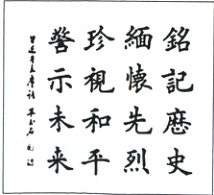 銘記歷史
緬懷先烈
珍視和平
警示未来